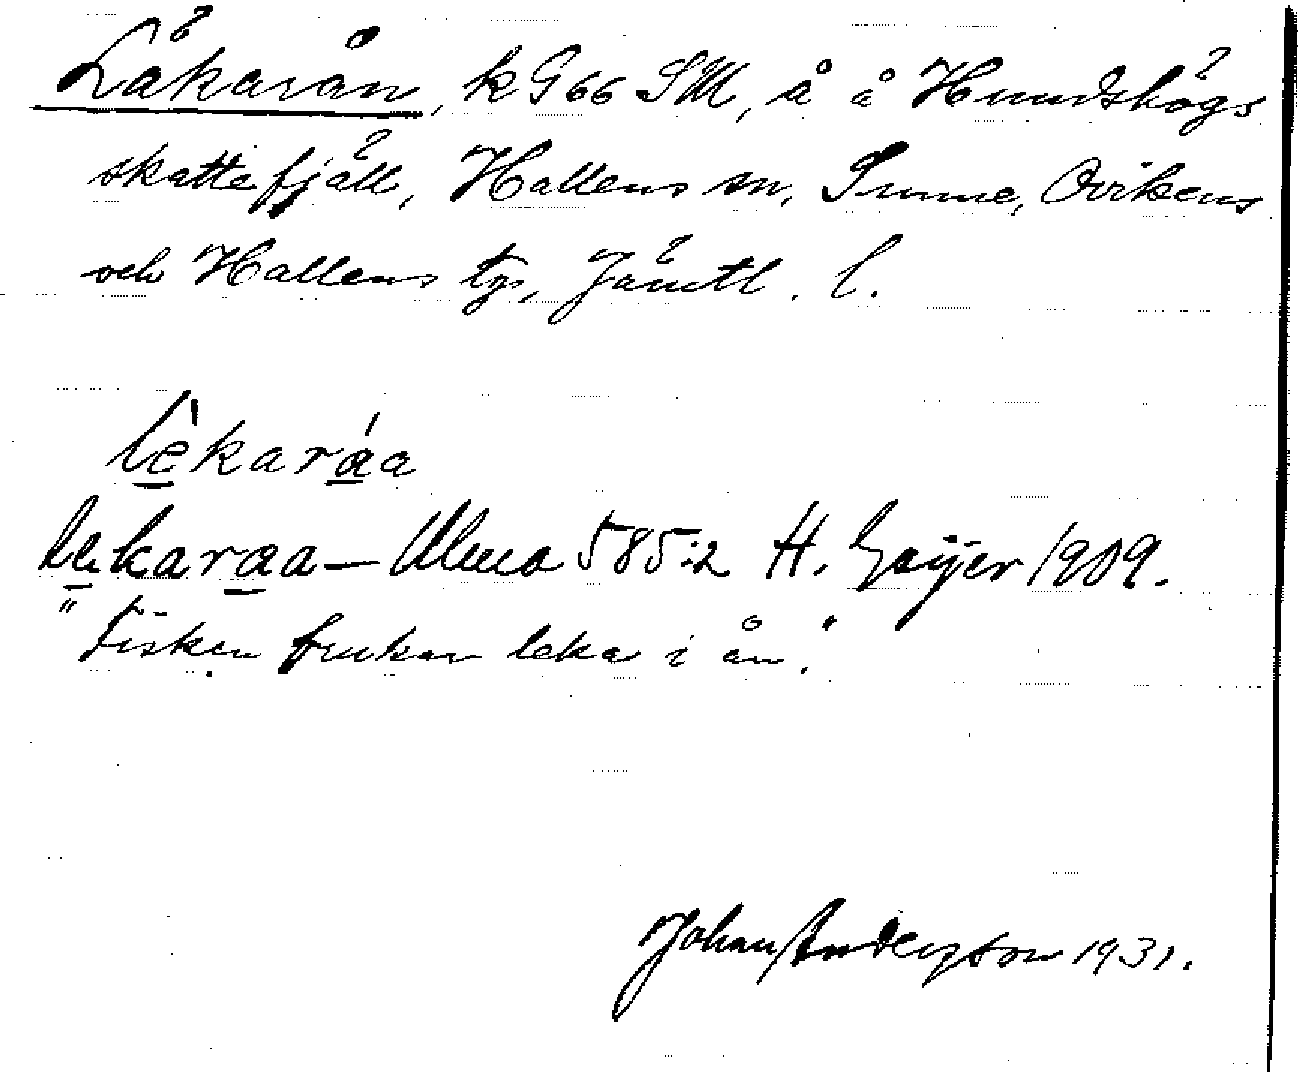 Läkarån, k G 66 SM, å å Hundshögs
skattefjäll, Hallens sn, Sunne, Ovikens
och Hallens tg, Jämtl. l.
lèkaráa
lekaraa — Ulma 585:2 H. Geijer 1909.
"Fisken brukar leka i ån."
Johan Anderson 1931.